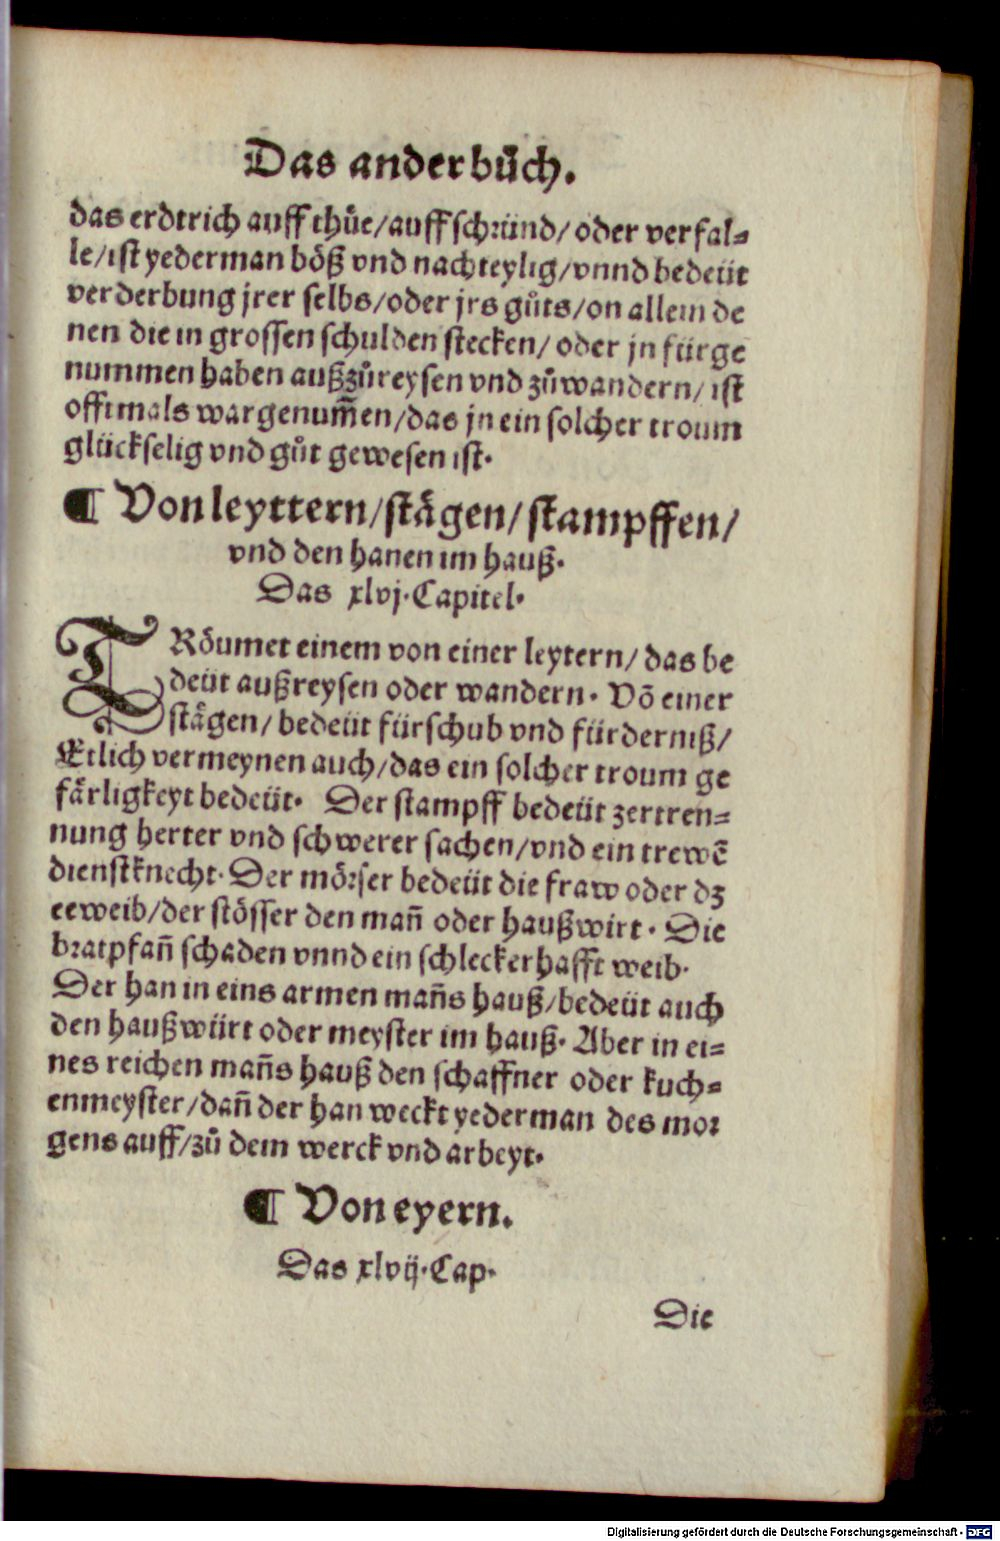 Das ander bůch.
das erdtrich auff thůe/auffschründ/ oder verfal⸗
le/ist yederman böß vnd nachteylig/vnnd bedeüt
verderbung jrer selbs/oder jrs gůts/on allein de
nen die in grossen schulden stecken/ oder jn fürge
nummen haben außzůreysen vnd zůwandern/ ist
offtmals wargenum̄en/das jn ein solcher troum
glückselig vnd gůt gewesen ist.
¶ Von leyttern/stägen/stampffen/
vnd den hanen im hauß.
Das xlvj. Capitel.
TRöumet einem von einer leytern/ das be
deüt außreysen oder wandern. Võ einer
stägen/ bedeüt fürschub vnd fürderniß/
Etlich vermeynen auch/das ein solcher troum ge
färligkeyt bedeüt. Der stampff bedeüt zertren⸗
nung herter vnd schwerer sachen/vnd ein trewẽ
dienstknecht. Der mörser bedeüt die fraw oder dz
eeweib/der stösser den man̄ oder haußwirt. Die
bratpfan̄ schaden vnnd ein schleckerhafft weib.
Der han in eins armen man̄s hauß/bedeüt auch
den haußwürt oder meyster im hauß. Aber in ei⸗
nes reichen man̄s hauß den schaffner oder kuch⸗
enmeyster/dan̄ der han weckt yederman des mor
gens auff/zů dem werck vnd arbeyt.
¶ Von eyern.
Das xlvij. Cap.
Die
Digitalisierung gefördert durch die Deutsche Forschungsgemeinschaft - DFG